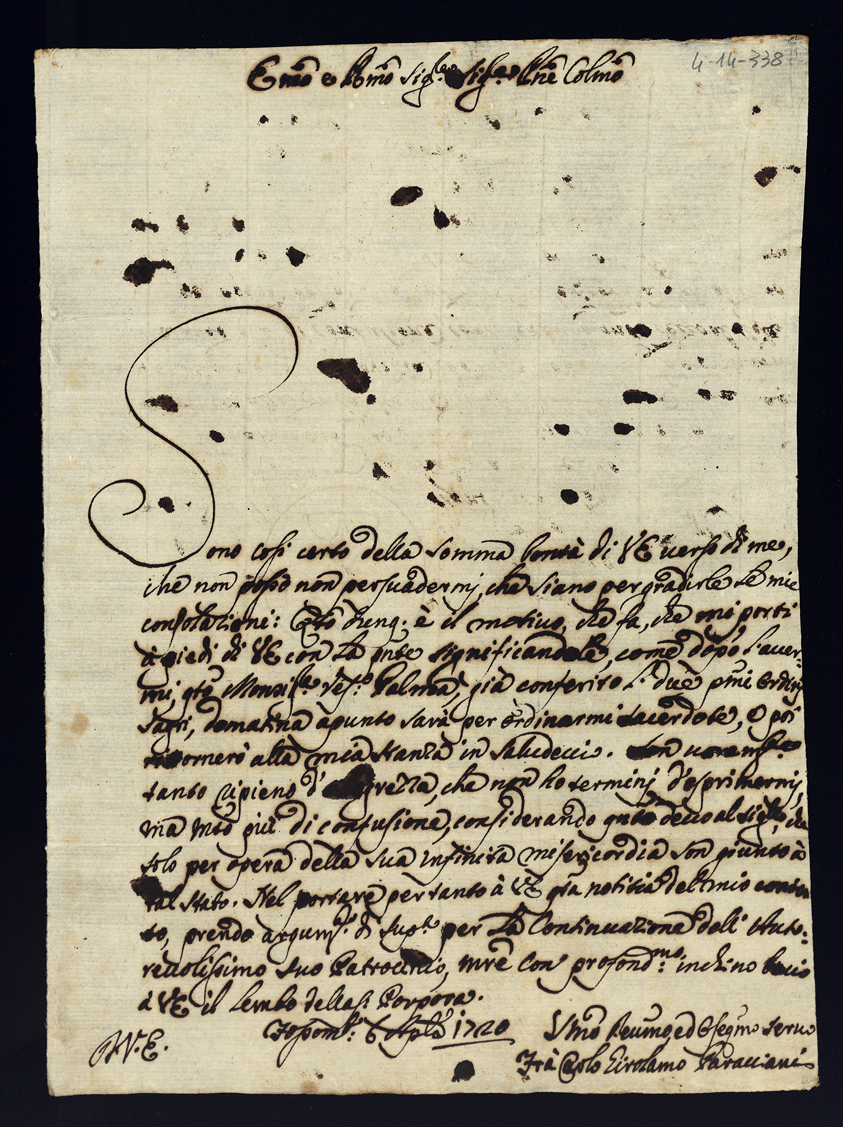 4-14-338
Emo e Rmo Sig.re Sig.re Pne Colmo
Sono così certo della somma bontà di VE verso di me,
che non posso non persuadermi, che siano per gradirle le mie
consolationi: Qto è il motivo, che fa, che mi porti
à piedi di VE con la pnte significandole, come dopo l'aver-
mi, qto Monsig.r Palma, già conferito l' due pmi Ordini
Sagri, domatina àpunto sarà per ordinarmi sacerdote, e poi
ritornerò alla mia stanza in Saludecci. Son
tanto ripieno d'allegrezza, che non ho termini d'esprimermi,
ma mto più di confusione, considerando qnto devo al Sig.re, che
solo per opera della sua infinita misericordia son giunto à
tal stato. Nel portare per tanto à VE qta notitia del mio conten
to, prendo argum.to di supp.la per la Continuazione dell' Auto:
revolissimo suo Patrocinio, mre con profond.mo inchino bacio
à VE il lembo della S. Porpora.
Fosomb.e 6 1720 Vmo Devmo ed Obsegmo Servo
D. V. E. Frà Carlo Girolamo Paracciani